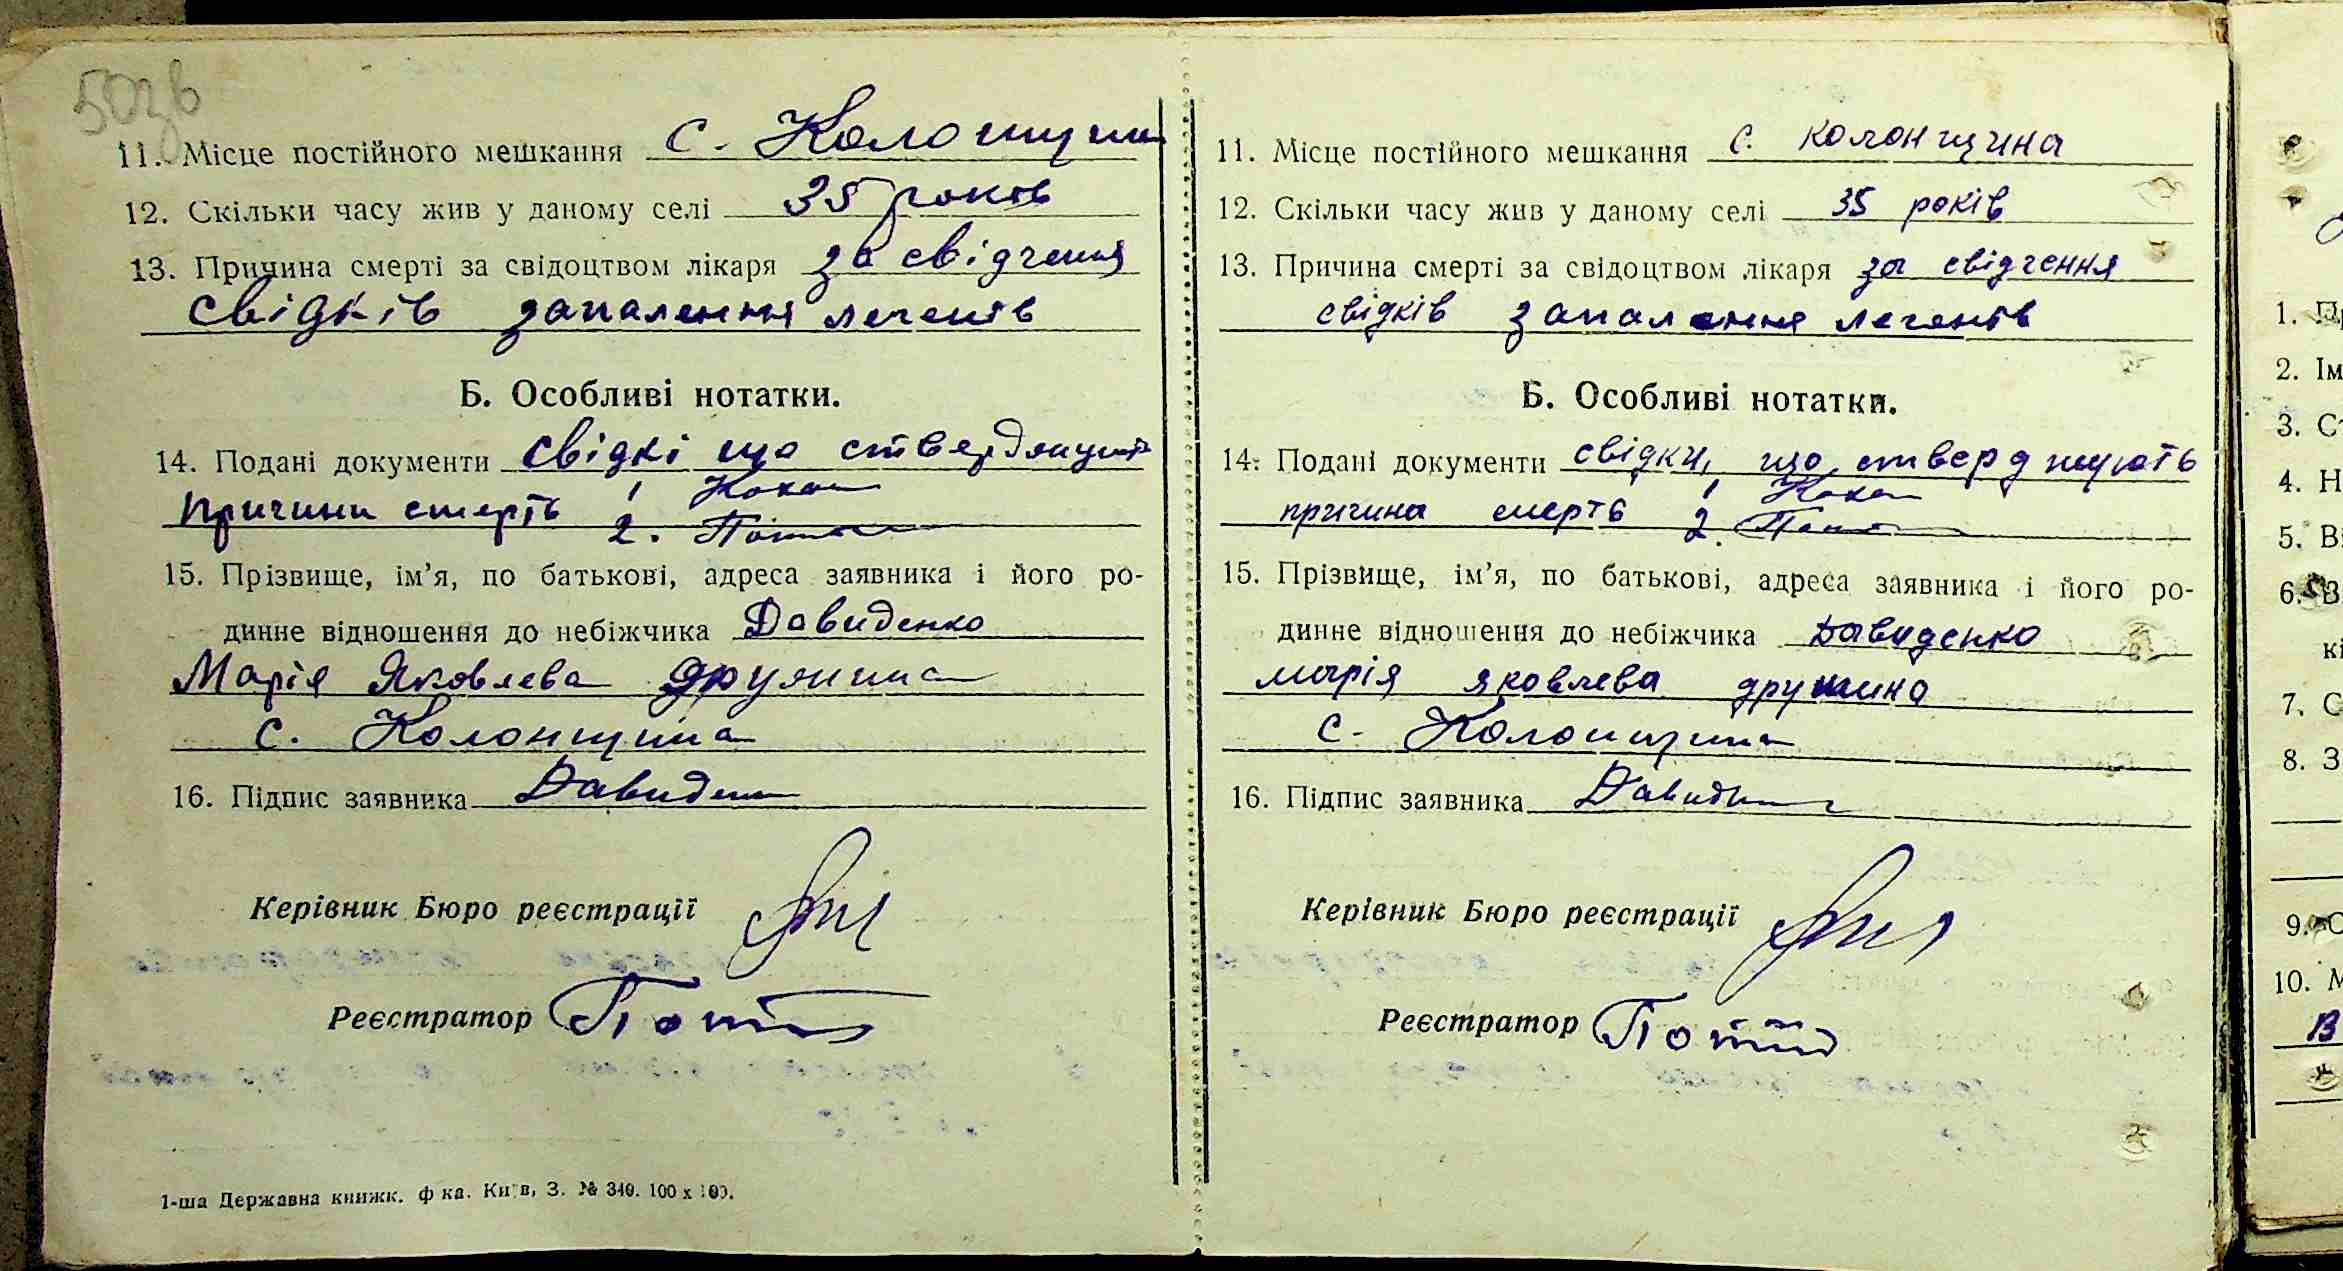 50зв
11. Місце постійного мешкання с. Колонщина
12. Скільки часу жив у даному селі 35 років
13. Причина смерті за свідоцтвом лікаря за свідчення
свідків запалення легенів
Б. Особливі нотатки.
14. Подані документи свідкі що стверджують
причини смерть 1
2.
15. Прізвище, ім'я, по батькові, адреса заявника і його ро-
динне відношення до небіжчика Давиденко
Марія Яковлева дружина
с. Колонщина
16. Підпис заявника Давиден
Керівник Бюро реєстрації
Реєстратор
1-ша Державна книжк. ф ка. Київ, З. № 340. 100 х 100.
11. Місце постійного мешкання с. колонщина
12. Скільки часу жив у даному селі 35 років
13. Причина смерті за свідоцтвом лікаря за свідчення
свідків запалення легенів
Б. Особливі нотатки.
14. Подані документи свідки, що стверджують
причина смерть 1
2.
15. Прізвище, ім'я, по батькові, адреса заявника і його ро-
динне відношення до небіжчика Давиденко
марія яковлева дружина
с. Колонщина
16. Підпис заявника
Керівник Бюро реєстрації
Реєстратор
1. Пр
2. Ім
3. Ст
4. Н
5. Ві
6. В
кі
7. С
8. З
9. С
10. М
в